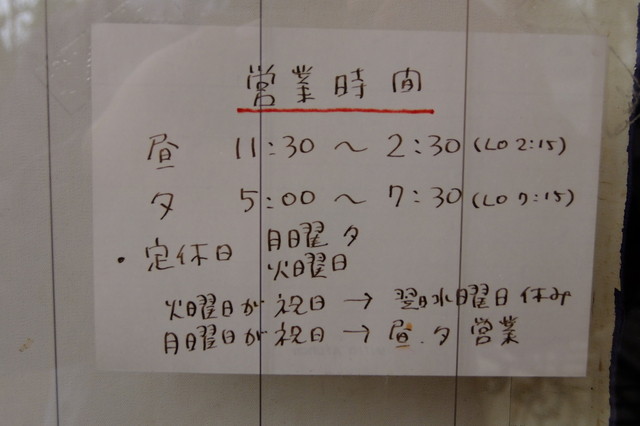 営業時間
昼 11:30 〜 2:30 (LO 2:15)
夕 5:00 〜 7:30 (LO 7:15)
・定休日 月曜 夕
火曜日
火曜日が祝日 → 翌日水曜日休み
月曜日が祝日 → 昼.夕 営業